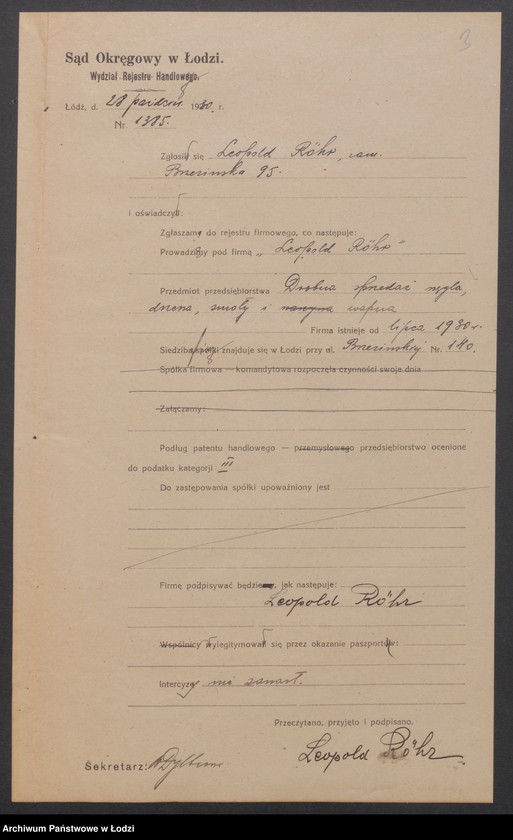 3
Sąd Okręgowy w Łodzi.
Wydział Rejestru Handlowego.
Łódź, d. 28 paździer. 1930. r.
Nr. 1385.
Zgłosił się Leopold Röhr, zam.
Brzezińska 95.
i oświadczył:
Zgłaszam do rejestru firmowego, co następuje:
Prowadzę pod firmą „Leopold Röhr"
Przedmiot przedsiębiorstwa Drobna sprzedaż węgla,
drzewa, smoły i wapna
Firma istnieje od lipca 1930 r.
Siedziba spółki znajduje się w Łodzi przy ul. Brzezińskiej Nr. 140.
Spółka firmowa — komandytowa rozpoczęła czynności swoje dnia
Załączamy:
Podług patentu handlowego — przemysłowego przedsiębiorstwo ocenione
do podatku kategorji III
Do zastępowania spółki upoważniony jest
Firmę podpisywać będzie, jak następuje:
Leopold Röhr
Wspólnicy wylegitymował się przez okazanie paszportu:
Intercyzy nie zawarł.
Przeczytano, przyjęto i podpisano.
Leopold Röhr
Sekretarz:
Archiwum Państwowe w Łodzi